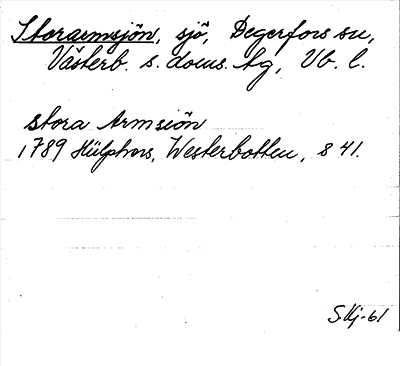 Storarmsjön, sjö, Degerfors sn,
Västerb. s. doms. tg, Vb. l.
stora Armsiön
1789 Hülphers, Westerbotten, s 41.
SKj-61